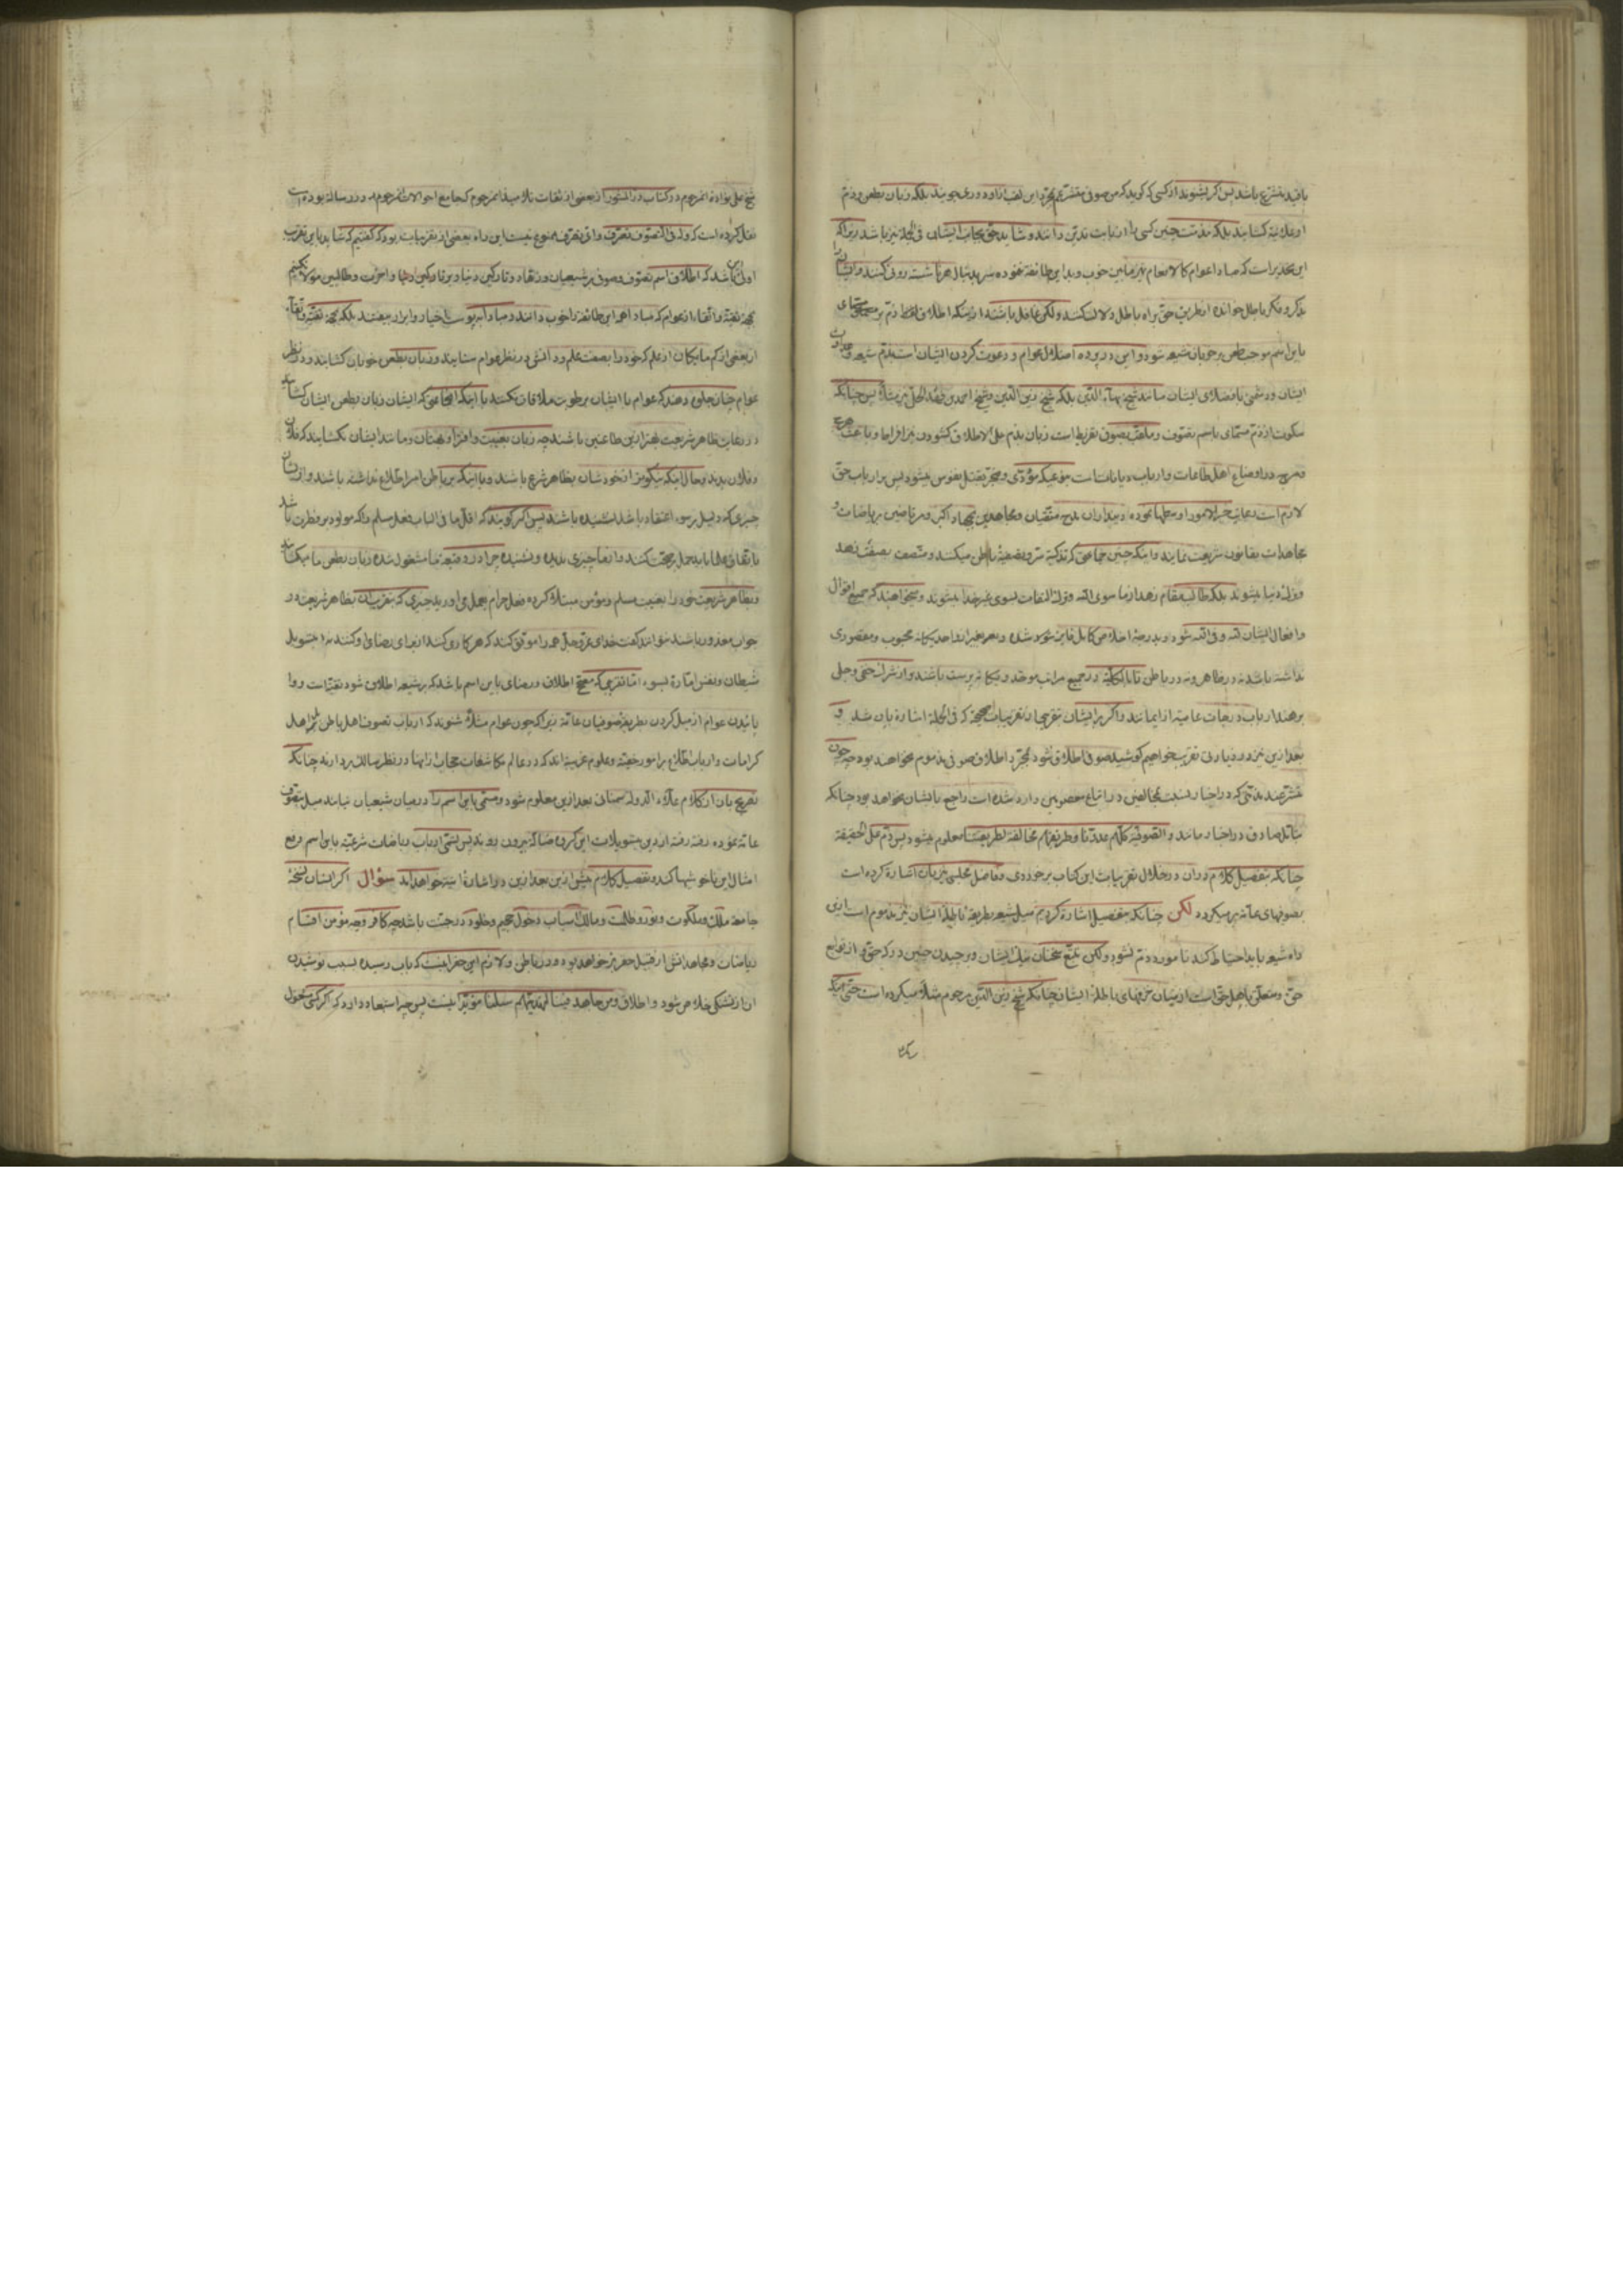 باقید بتشرّع باشد پس اگر بشنوند از کسی که گوید که من صوفی متشرّعم بمجرّد این لقب از او دوری جویند بلکه زبان بطعن و ذمّ
او علانیة گشایند بلکه مذمّت چنین کسی را از بابت تدیّن دانند و شاید حقّ بجانب ایشان فی الجملة نیز باشد زیرا که
این تحذیر است که مبادا عوام کالانعام تمیز مابین خوب و بد این طائفه نموده سر بدنبال هر ناشسته روئی کنند و ایشان
بذکر و فکر باطل خوانده از طریق حقّ براه باطل دلالت کنند ولکن غافل باشند از اینکه اطلاق لفظ ذمّ بر مسمّای
باین اسم موجب طعن بر خوبان شیعه شود و این در پرده اضلال عوام و دعوت کردن ایشان است بذمّ شیعه و عداوت
ایشان و دشمنی با فضلای ایشان مانند شیخ بهاء الدّین بلکه شیخ زین الدّین و شیخ احمد بن فهد الحلّی نیز مثلاً پس چنانکه
سکوت از ذمّ مسمّای باسم تصوّف و ملقّب بصوفی تفریط است زبان بذمّ علی الاطلاق گشودن نیز افراط و باعث
و مرج در اوضاع اهل طاعات و ارباب دیانات است بنوعیکه مؤدّی و منجرّ بقتل نفوس میشود پس بر ارباب حقّ
لازم است رعایت خیر الامور اوسطها نموده دینداران بمدح متّقیان و مجاهدین بجهاد اکبر و مرتاضین بریاضات و
مجاهدات بقانون شریعت نمایند و اینکه چنین جماعتی که تزکیه سرّ و تصفیهٔ باطن میکنند و متّصف بصفت زهد
و ترک دنیا میشوند بلکه طالب مقام زهد از ما سوی الله و ترک التفات بسوی غیر خدا میشوند و میخواهند که جمیع اقوال
و افعال ایشان لله و فی الله شود و بدرجهٔ اخلاص کامل فایز شوند شده و بغیر از واحد یگانه محبوب و مقصودی
نداشته باشند نه در ظاهر و نه در باطن تا بالکلّیه در جمیع مراتب موحّد و یگانه پرست باشند و از شرک خفیّ و جلی
برهند ارباب درجات عالیهٔ از ایمانند و اگر بر ایشان بتقریبات صحیحه که فی الجمله اشاره بآن شد و
بعد ازین نیز در زیادتی تقریب خواهیم کوشید صوفی اطلاق شود بمجرّد اطلاق صوفی مذموم نخواهند بود چون
متشرّعند مذمّتی که در اخبار نسبت بمخالفین و در اتباع معصومین وارد شده است راجع بایشان نخواهد بود چنانکه
متأمّل صادق در اخبار مانند و الصوفیّة کلّهم عدوّنا و طریقتهم مخالفة لطریقتنا معلوم میشود پس ذمّ علی الحقیقة
چنانکه بتفصیل کلام در آن در خلال تقریبات این کتاب برخوردی و فاضل مجلسی نیز بآن اشاره کرده است
بصوفیهای عامّه برمیگردد لکن چنانکه بتفصیل اشاره کردیم میل شیعه بطریقهٔ باطلهٔ ایشان نیز مذموم است ازین
راه شیعه باید احتیاط کند تا مورد ذمّ نشود ولکن تتبّع سخنان نیک ایشان و برچیدن چنین در که حقّ و از توابع
حقّ و متعلّق باهل حقّ است از میان خزفهای باطلهٔ ایشان چنانکه شیخ زین الدّین مرحوم مثلاً میکرده است حتّی اینکه
شیخ علی نوادهٔ آنمرحوم در کتاب در المنثور از بعضی از ثقات تلامیذ آنمرحوم که جامع احوالات آنمرحوم در رساله بوده است
نقل کرده است که وله فی التصوّف تصرّف و ایّ تصرّف ممنوع نیست این راه بعضی از تقریبات بود که گفتیم که شاید باین تقریب
اولی این باشد که اطلاق اسم تصوّف و صوفی بر شیعیان و زهّاد و تارکین دنیا و بر تارکین دنیا و آخرت و طالبین مولا نکنیم
بجهة تقیّه و اتّقاء از عوام که مبادا همه این طائفه را خوب دانند و مبادا به پوست اخیار و ابرار بیفتند بلکه بجهة تقیّه و اتّقاء
از بعضی از کم مایگان از علم که خود را بصفت علم و دانش در نظر عوام ستایند و زبان بطعن خوبان گشایند و در نظر
عوام چنان جلوه دهند که عوام با ایشان برطوبت ملاقات نکنند با اینکه آنجماعتی که ایشان زبان بطعن ایشان گشایند
در رعایت ظاهر شریعت بهتر ازین طاعنین باشند چه زبان بغیبت و افترا و بهتان و مانند ایشان نگشایند که فلان
و فلان بدند و حال اینکه نیکوتر از خودشان بظاهر شرع باشند و با اینکه بر باطن امر اطّلاع نداشته باشند و از ایشان
چیزی که دلیل بر سوء اعتقاد باشد نشنیده باشند پس اگر گویند که اقلّ ما فی الباب فعل مسلم و آنکه مولود بر فطرت باشد
باتّفاق علما باید حمل بر صحّت کنند و از ما چیزی ندیده و نشنیده چرا در وقیعهٔ ما مشغول شده زبان بطعن ما میگشایند
و بظاهر شریعت خود را بغیبت مسلم و مؤمن مبتلا کرده فعل حرام بعمل می آورید چیزی که مقرّبان بظاهر شریعت در
جواب معذور باشند نتوانند گفت خدای عزّ و جلّ همه را موفّق کند که هر کاری کنند از برای رضای او کنند نه از تسویل
شیطان و نفس امّاره بسوء امّا تقریبی که مصحّح اطلاق و رضای باین اسم باشد که بر شیعه اطلاق شود تقیّه است و وا
پائیدن عوام از میل کردن بطریقهٔ صوفیان عامّه زیرا که چون عوام مثلاً شنوند که ارباب تصوف اهل باطن و اهل
کرامات و ارباب اطّلاع بر امور خفیّه و علوم غریبه اند که در عالم مکاشفات حجاب از اینها در نظر سالک بردارند چنانکه
تصریح بآن از کلام علاء الدوله سمنانی بعد ازین معلوم شود و مسمّی باین اسم را در میان شیعیان نیابند میل بتصوّف
عامّه نموده رفته رفته از دین بتسویلات این گروه ضالّه بیرون روند پس تسمّی ارباب ریاضات شرعیّه باین اسم رفع
امثال این ناخوشیها کند و تفصیل کلام بیش ازین بعد ازین در اشارهٔ آتیه خواهد آمد سؤال اگر انسان نسخهٔ
جامعهٔ ملک و ملکوت و نور و ظلمت و مالک اسباب دخول جحیم و خلود در جنّت باشد چه کافر و چه مؤمن اقسام
ریاضات و مجاهداتش از قبیل حفر بئر خواهد بود در زمین باطن و لازم این حفر اینست که بآب رسیده بسبب نوشیدن
آن از تشنگی خلاص شود و اطلاق و من جاهد فینا لنهدینّهم سبلنا مؤیّد آنست پس چه استبعاد دارد که اگر کسی مشغول